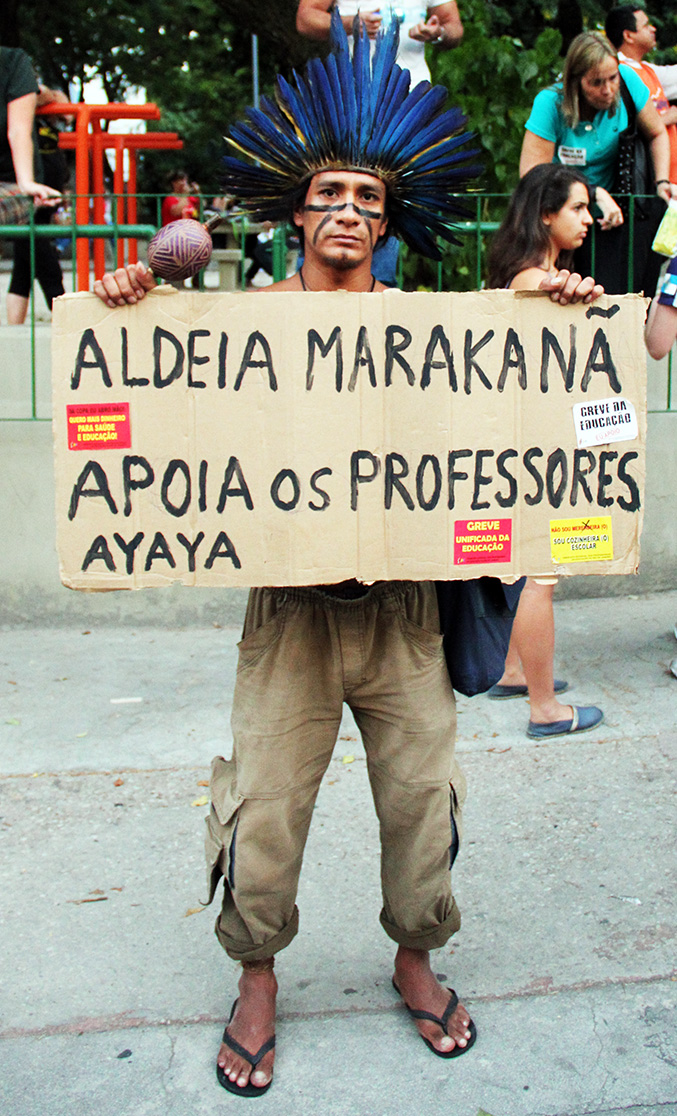 ALDEIA MARAKANÃ
NA COPA EU ABRO MÃO!
QUERO MAIS DINHEIRO
PARA SAÚDE
E EDUCAÇÃO!
GREVE NA
EDUCAÇÃO
APOIA OS PROFESSORES
AYAYA
GREVE
UNIFICADA DA
EDUCAÇÃO
NÃO SOU MERENDEIRA (O)
SOU COZINHEIRA (O)
ESCOLAR